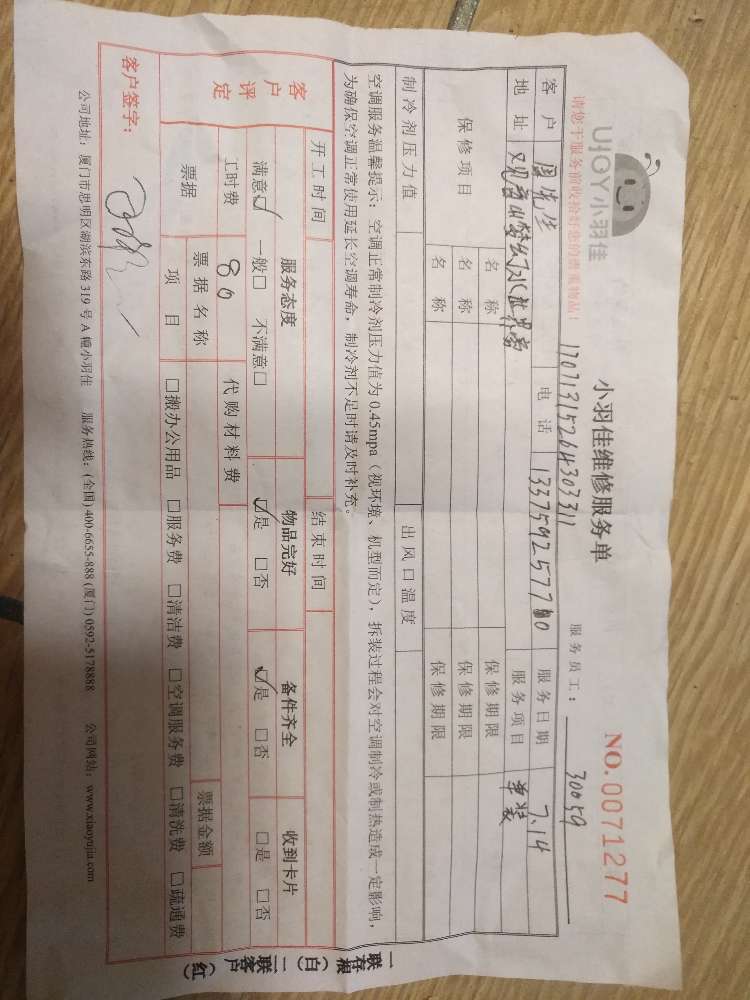 UJOY小羽佳
小羽佳维修服务单
NO.0071277
请您于服务前收拾好您的贵重物品！
17071315264303311
服务员工： 30059
客户 电话 服务日期 7.14
地址 服务项目 单装
保修项目 名称 保修期限
名称 保修期限
名称 保修期限
制冷剂压力值 出风口温度
空调服务温馨提示：空调正常制冷剂压力值为0.45mpa（视环境、机型而定），拆装过程会对空调制冷或制热造成一定影响，
为确保空调正常使用延长空调寿命，制冷剂不足时请及时补充。
开工时间 结束时间
客户评定 服务态度 物品完好 备件齐全 收到卡片
满意☑ 一般□ 不满意□ ☑是 □否 ☑是 □否 □是 □否
工时费 80 代购材料费
票据 票据名称 票据金额
项目 □搬办公用品 □服务费 □清洁费 □空调服务费 □清洗费 □疏通费
客户签字：
公司地址：厦门市思明区湖滨东路319号A幢小羽佳 服务热线：(全国) 400-6655-888 (厦门) 0592-5178888 公司网站：www.xiaoyujia.com
一联存根（白）二联客户（红）